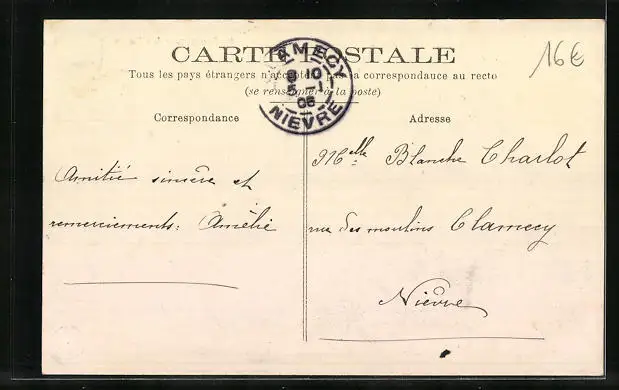 CARTE POSTALE
16€
Tous les pays étrangers n'acceptent pas la correspondance au recto
(se renseigner à la poste)
CLAMECY
10
5 -1
06
NIEVRE
Correspondance
Adresse
Amitié sincère et
remerciements: Amélie
Melle Blanche Charlot
rue des moulins Clamecy
Nièvre